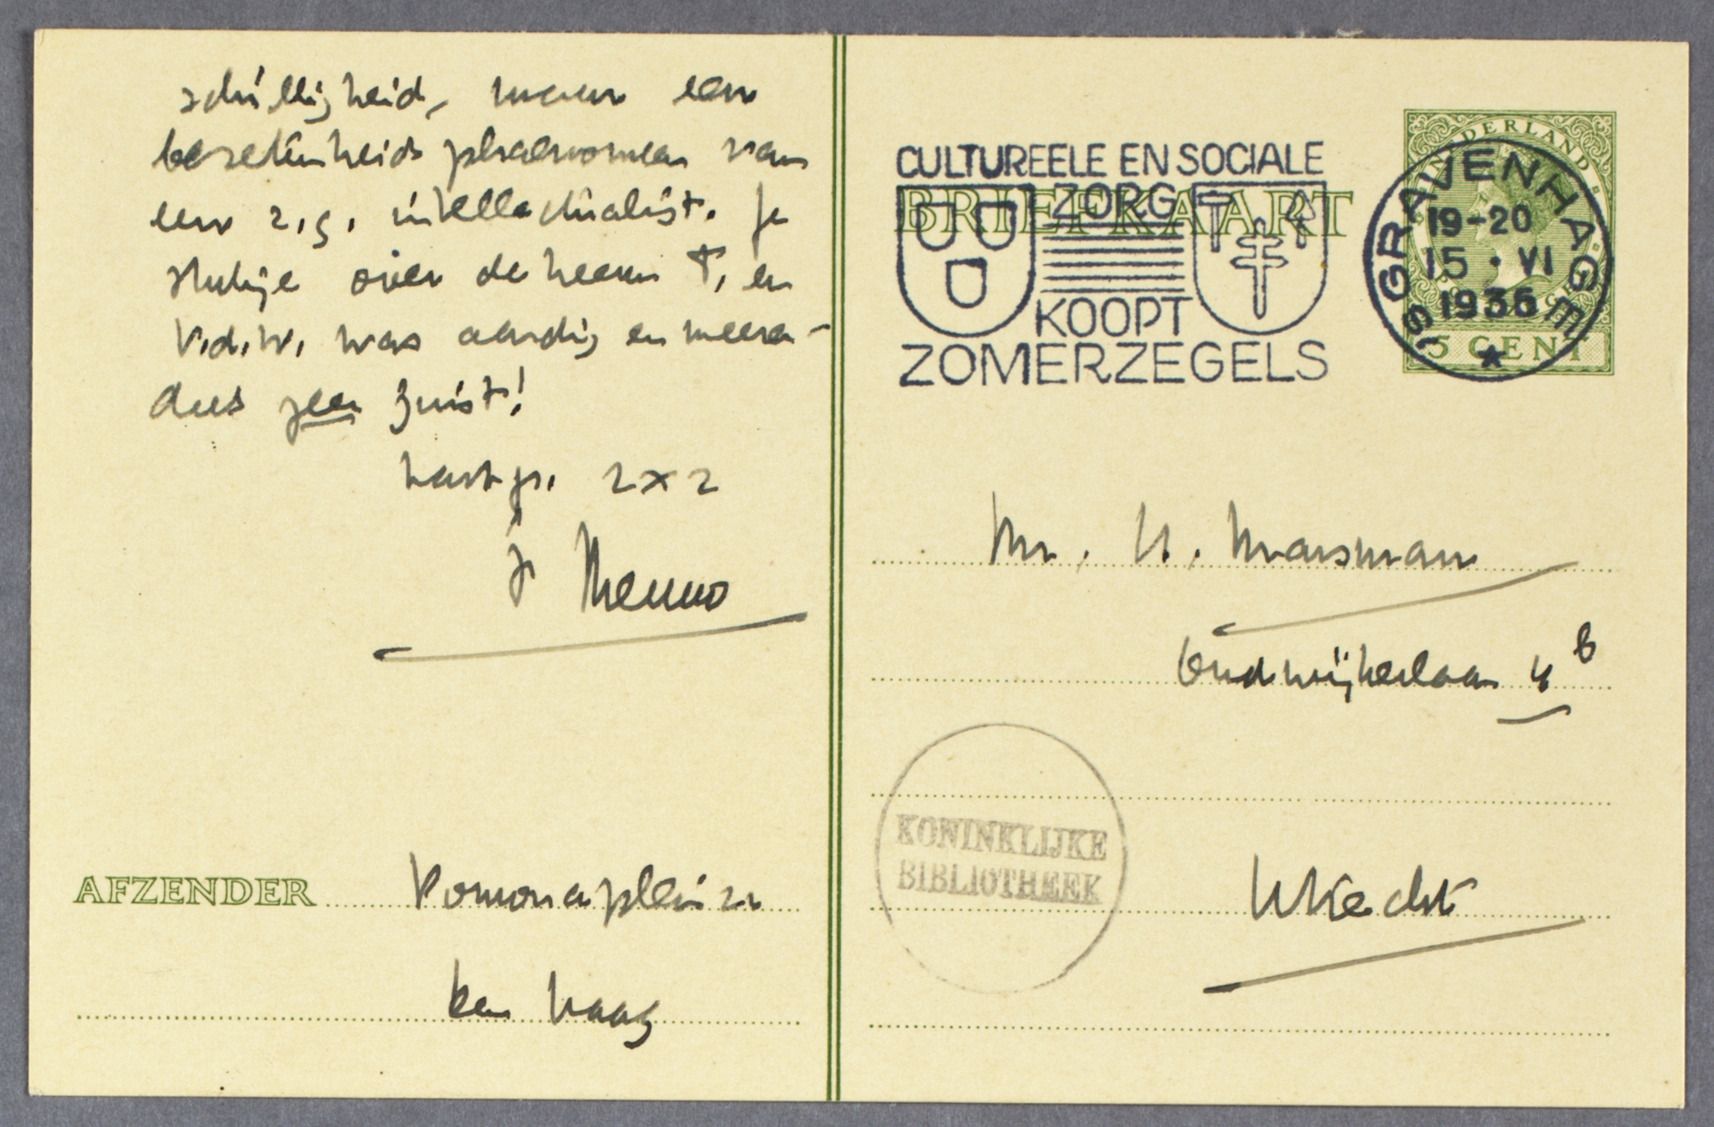 schilligheid, maar een
bezetenheidsphaenomeen van
een z.g. intellectualist. Je
stukje over de heeren T. en
V.d.W. was aardig en meera-
dus geen juist!
hart.gr. 2x2
je Menno
AFZENDER Pomonaplein 22
Den Haag
CULTUREELE EN SOCIALE
ZORG
BRIEFKAART
KOOPT
ZOMERZEGELS
NEDERLAND
5 CENT
'S GRAVENHAGE
19-20
15 · VI
1936
Mr. H. Marsman
Oudwijkerlaan 4 b
KONINKLIJKE
BIBLIOTHEEK
Utrecht